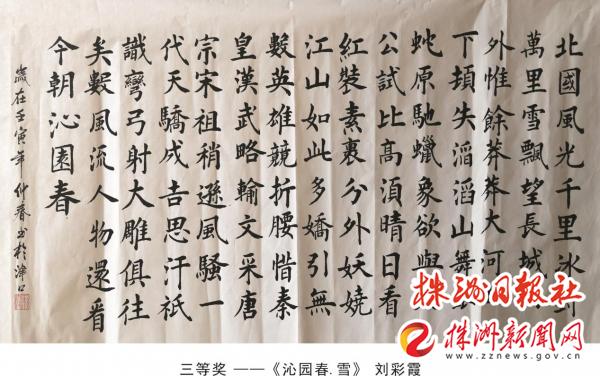 北國風光千里冰
萬里雪飄望長城
外惟餘莽莽大河
下頓失滔滔山舞
虵原馳蠟象欲與
公試比高須晴日看
紅裝素裹分外妖嬈
江山如此多嬌引無
數英雄競折腰惜秦
皇漢武略輸文采唐
宗宋祖稍遜風騷一
代天驕成吉思汗祇
識彎弓射大雕俱往
矣數風流人物還看
今朝沁園春
歲在壬寅年仲春书於淥口
株洲日报社
株洲新闻网
www.zznews.gov.cn
三等奖 ——《沁园春.雪》 刘彩霞